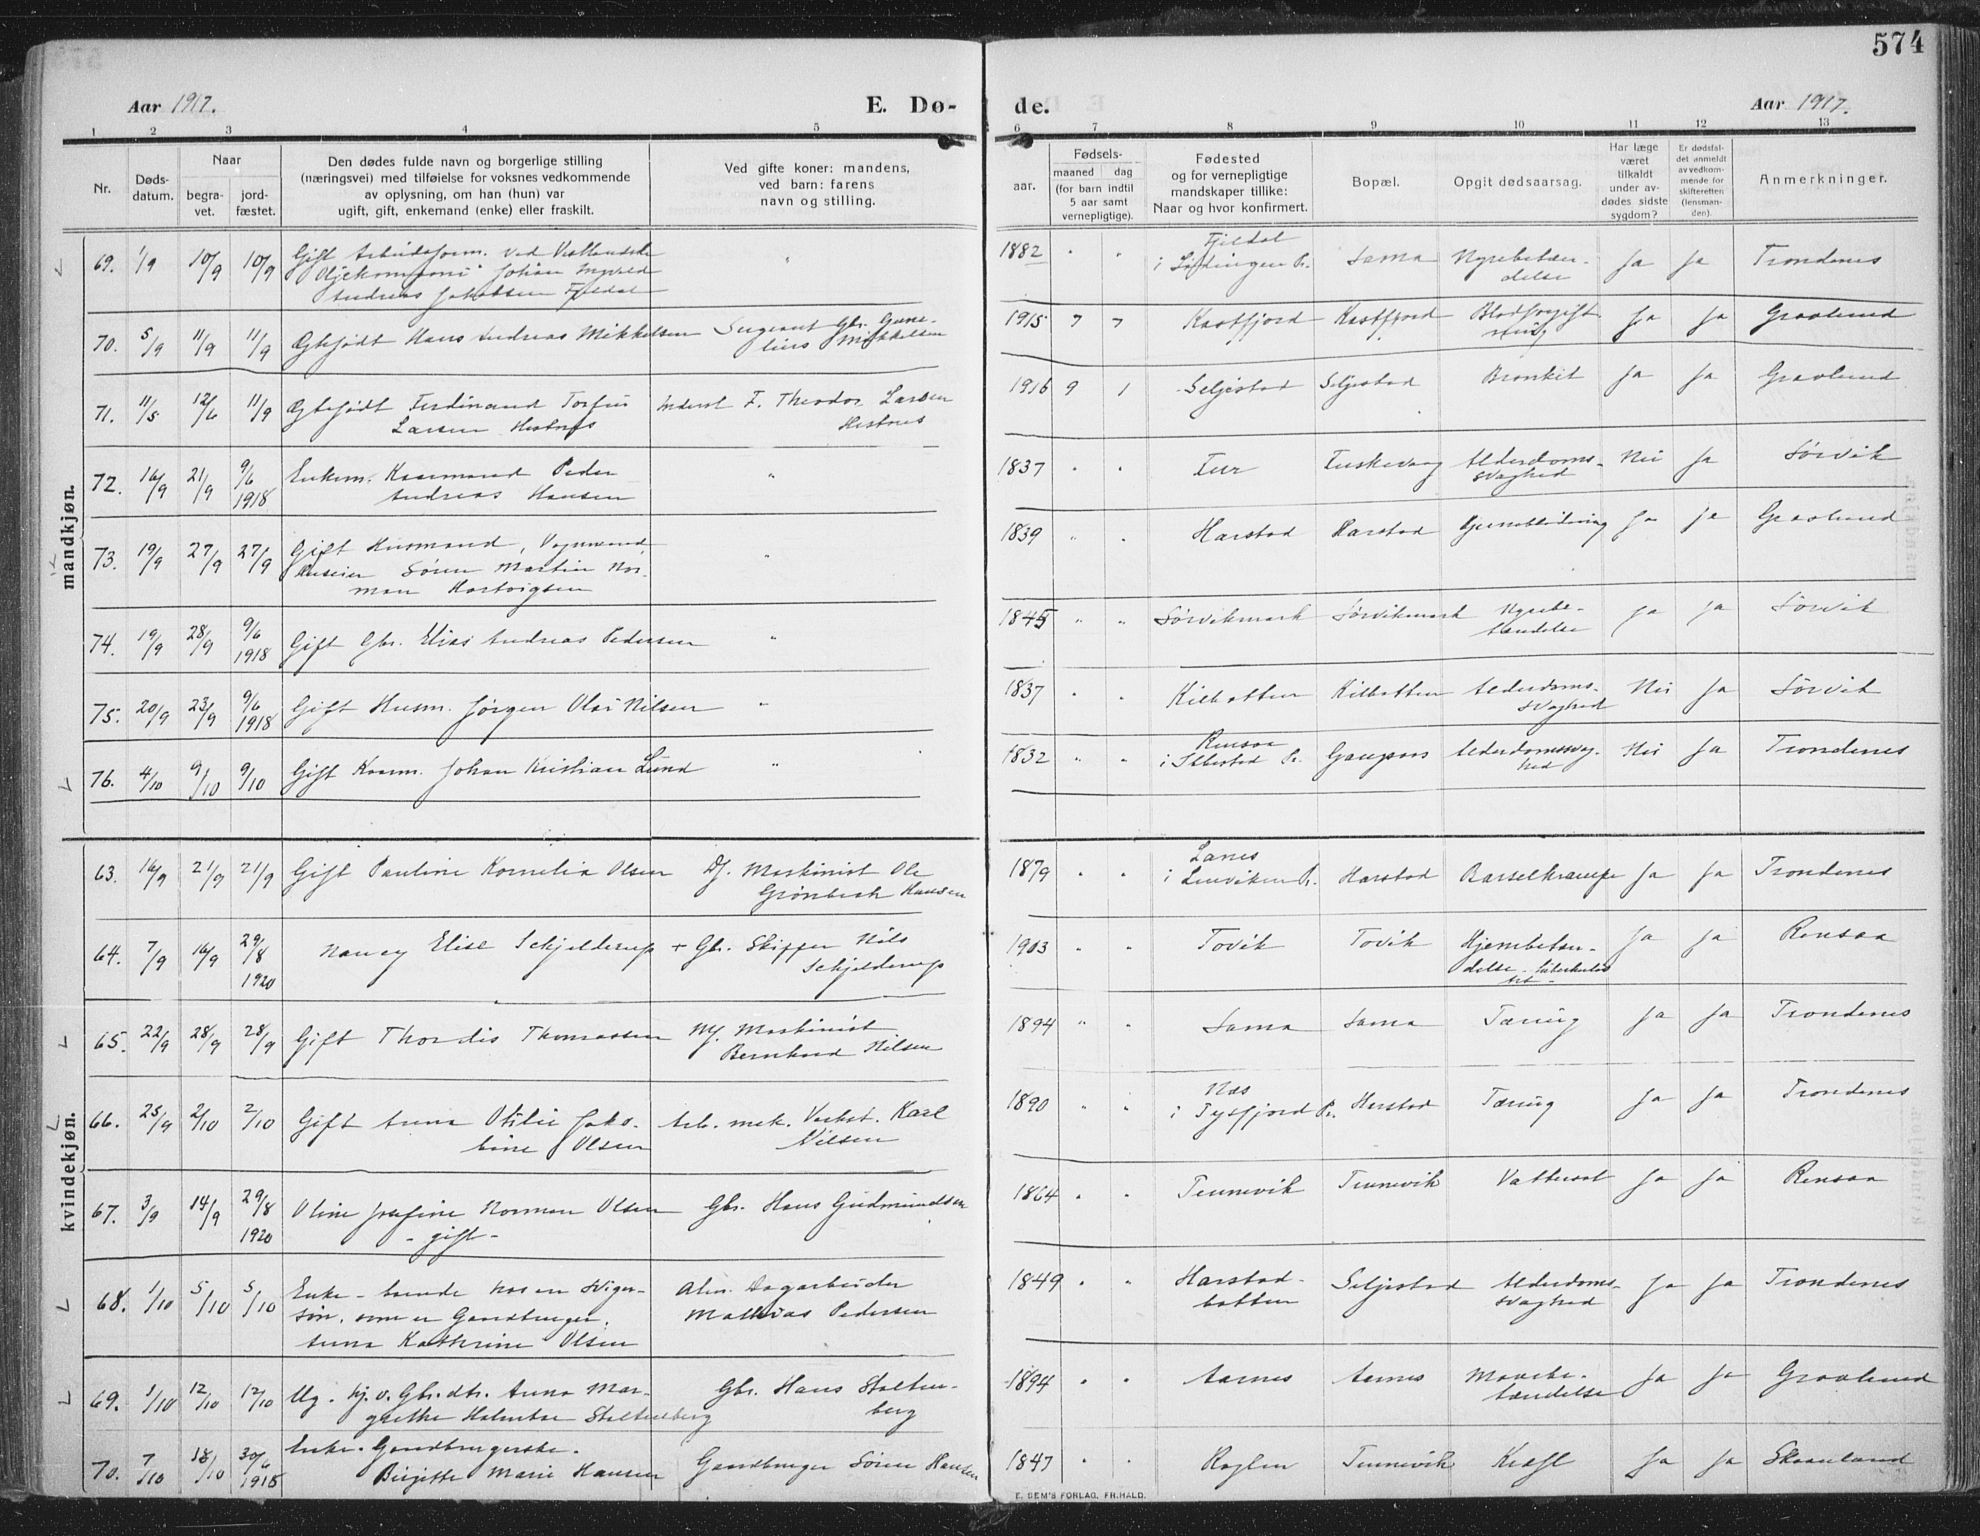 574
Aar 1917.
E. Dø-
de.
Aar 1917.
1 2 3 4 5 6 7 8 9 10 11 12 13
Nr.
Døds-
datum.
Naar
begra-
vet.
jord-
fæstet.
Den dødes fulde navn og borgerlige stilling
(næringsvei) med tilføielse for voksnes vedkommende
av oplysning, om han (hun) var
ugift, gift, enkemand (enke) eller fraskilt.
Ved gifte koner: mandens,
ved barn: farens
navn og stilling.
Fødsels-
aar.
maaned dag
(for barn indtil
5 aar samt
vernepligtige).
Fødested
og for vernepligtige
mandskaper tillike:
Naar og hvor konfirmert.
Bopæl.
Opgit dødsaarsag.
Har læge
været
tilkaldt
under av-
dødes sidste
sygdom?
Er dødsfal-
det anmeldt
av vedkom-
mende for
skifteretten
(lensman-
den).
Anmerkninger.
mandkjøn.
69. 1/9 10/9 10/9 Gift Arbeidsform. ved Vestlandske
Oljekompani Johan Ingvald
Andreas Jakobsen Fjeldal
" 1882 " " Fjeldal
i Lødingen Pr. Sama Nyrebetæn-
delse Ja Ja Trondenes
70. 5/9 11/9 11/9 Ægtefødt Hans Andreas Mikkelsen Sergeant Gbr.
Mikkelsen
1915 7 7 Kastfjord Kastfjord Blodforgift-
ning Ja Ja Gravlund
71. 11/5 12/6 11/9 Ægtefødt Ferdinand Torfin
Larsen Hestnes
Inderst F. Theodor Larsen
Hestnes
1916 9 1 Seljestad Seljestad Bronkit Ja Ja Gravlund
72. 16/9 21/9 9/6
1918 Enkem. Kaarmand Peder
Andreas Hansen
" 1837 " " Tur Tuskevaag Alderdoms-
svaghed Nei Ja Sørvik
73. 19/9 27/9 27/9 Gift Husmand, Vognmand,
Huseier Sören Martin Nor-
man Hartvigsen
" 1839 " " Harstad Harstad Hjerneblødning Ja Ja Gravlund
74. 19/9 28/9 9/6
1918 Gift Gbr. Elias Andreas Pedersen
" 1845 " " Sørvikmark Sørvikmark Nyrebe-
tændelse Ja Ja Sørvik
75. 20/9 23/9 9/6
1918 Gift Husm. Jørgen Olai Nilsen
" 1837 " " Kilbotten Kilbotten Alderdoms-
svaghed Nei Ja Sørvik
76. 4/10 9/10 9/10 Gift Kaarm. Johan Kristian Lund
" 1832 " " Rensaa
i Ibbestad Pr. Gangsaas Alderdomssvag-
hed Nei Ja Trondenes
kvindekjøn.
63. 16/9 21/9 21/9 Gift Pauline Kornelia Olsen Df. Maskinist Ole
Grønbech Hansen
1879 " " Lanes
i Lenviken Pr. Harstad Barselkrampe Ja Ja Trondenes
64. 7/9 16/9 29/8
1920 Nancy Elise Schjelderup + Gbr. Skipper Nils
Schjelderup
1903 " " Tovik Tovik Hjernebetæn-
delse Ja Ja Rensaa
65. 22/9 28/9 28/9 Gift Thordis Thomassen Mf. Maskinist
Bernhard Nilsen
1894 " " Sama Sama Tæring Ja Ja Trondenes
66. 25/9 2/10 2/10 Gift Anna Otilie Jako-
bine Olsen
Arb. mek. Verkst. Karl
Nilsen
1890 " " Næs
i Tysfjord Pr. Harstad Tæring Ja Ja Trondenes
67. 3/9 14/9 29/8
1920 Oline Josefine Norman Olsen
- gift -
Gbr. Hans Gudmundsen
1864 " " Tennevik Tennevik Vattersot Ja Ja Rensaa
68. 1/10 5/10 5/10 Enke - boende hos en sviger-
søn, som er Gaardbruger.
Anna Kathrine Olsen
Alm. Dagarbeider
Mathias Pedersen
1849 " " Harstad-
botten Seljestad Alderdoms-
svaghed Ja Ja Trondenes
69. 1/10 12/10 12/10 Ug. hj.v. Gbr.dtr. Anna Mar-
grethe Holmboe Stoltenberg
Gbr. Hans Stolten-
berg
1894 " " Aarnes Aarnes Mavebe-
tændelse Ja Ja Gravlund
70. 7/10 18/10 30/6
1918 Enke. Gaardbrugerske.
Birgitte Marie Hansen
Gaardbruger Sören Hansen
1847 " " Roglen Tennevik Kræft Ja Ja Skaanland
E. SEM'S FORLAG, FR.HALD.